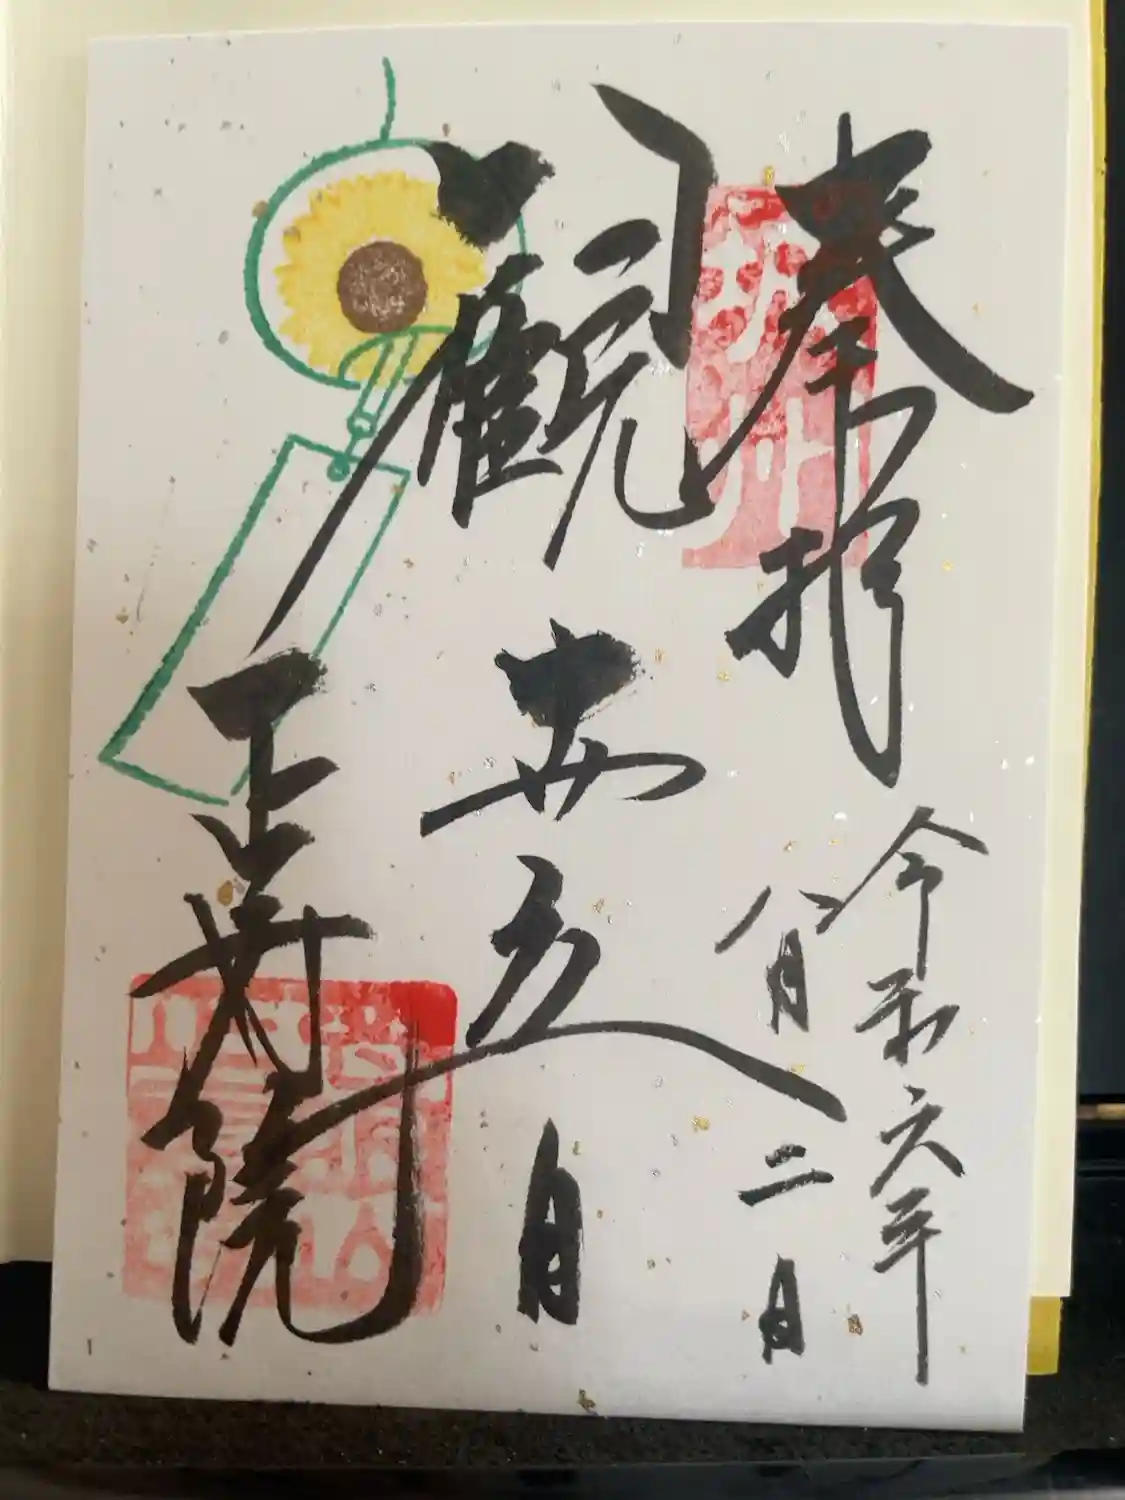 奉拝
令和六年
八月二日
觀世音
正寿院